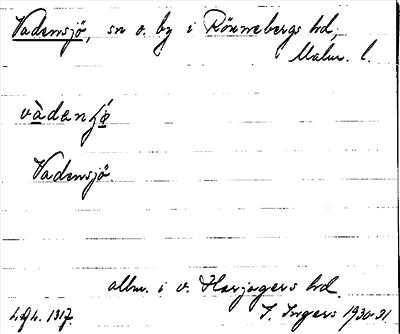 Vadensjö, sn o. by i Rönnebergs hd,
Malm. l.
vàdenʃø
Vadensjö.
allm. i v. Harjagers hd.
I. Ingers 1930-31.